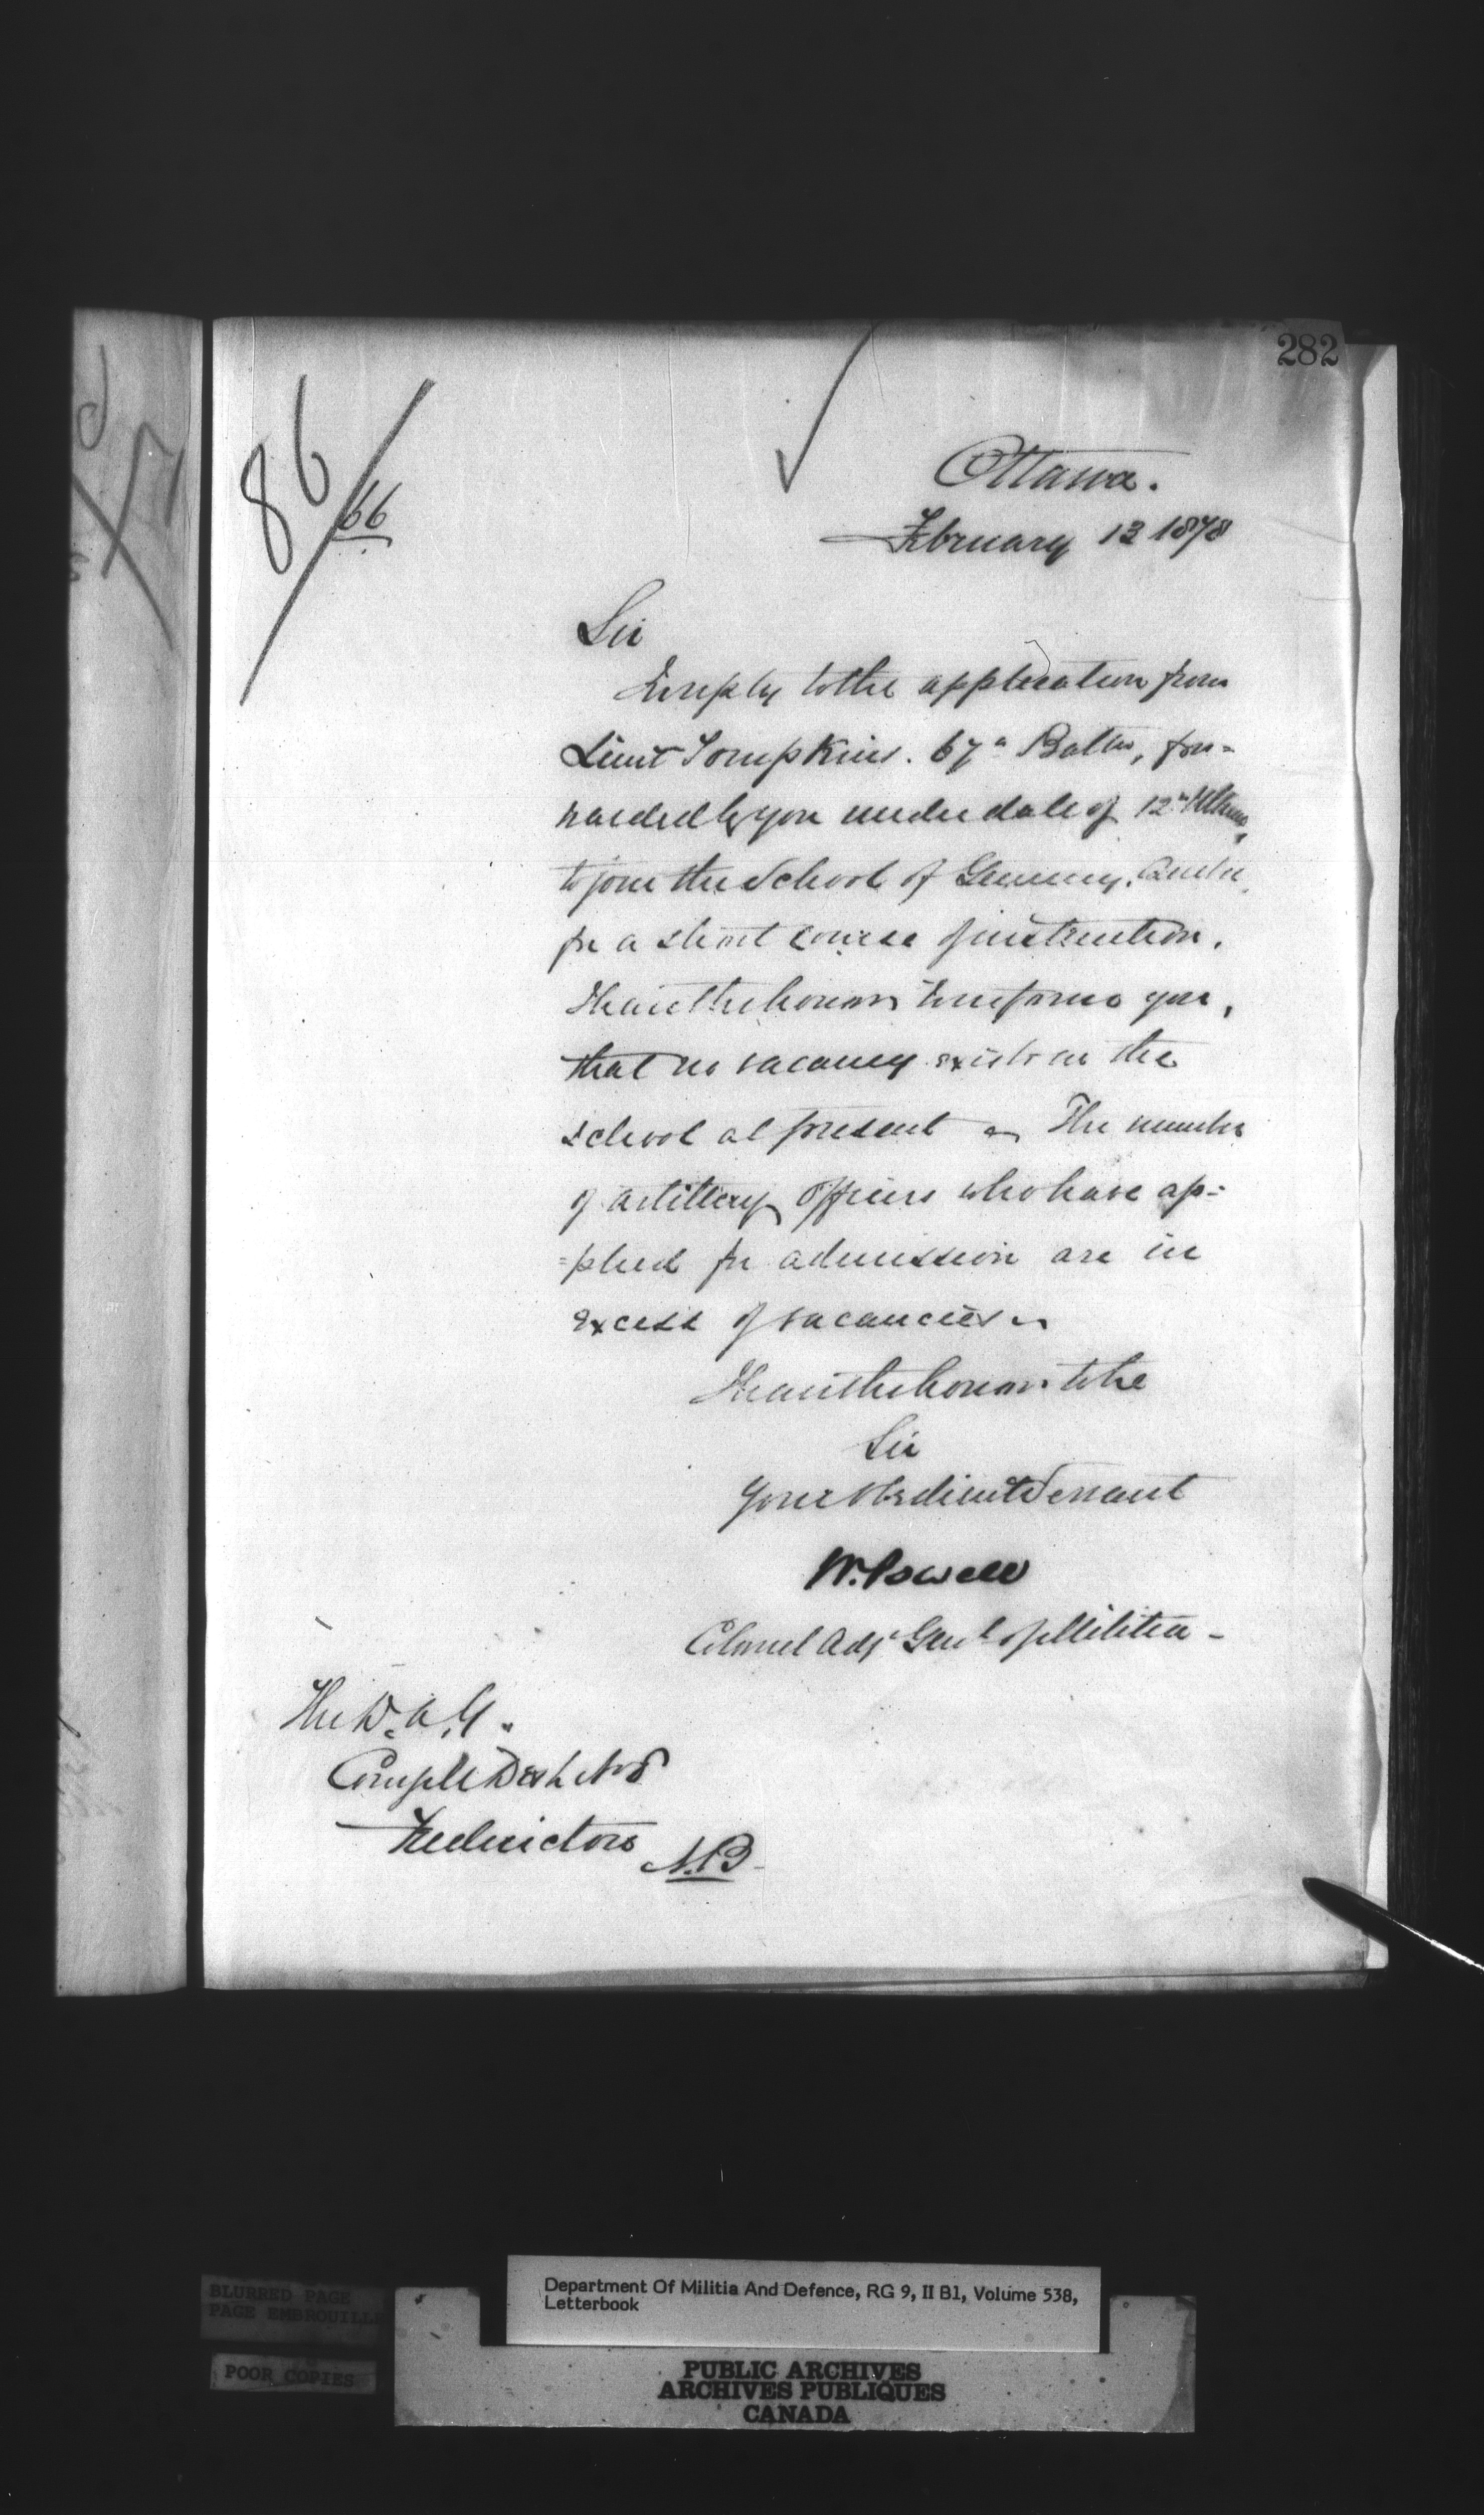 282
86/66
Ottawa.
February 13 1878
Sir
In reply to the application from
Lieut Tompkins. 67th Battn, for-
warded by you under date of 12th Ultimo,
to join the School of Gunnery, Quebec,
for a short course of instruction.
I have the honor to inform you,
that no vacancy exists in the
school at present The number
of artillery Officers who have ap-
=plied for admission are in
excess of vacancies
I have the honor to be
Sir
Your Obedient Servant
W. Powell
Colonel Adjt Genl of Militia -
The D. A. G.
Comg Mil Dist No 8
Fredericton N.B.
BLURRED PAGE
PAGE EMBROUILLE
POOR COPIES
Department Of Militia And Defence, RG 9, II B1, Volume 538,
Letterbook
PUBLIC ARCHIVES
ARCHIVES PUBLIQUES
CANADA